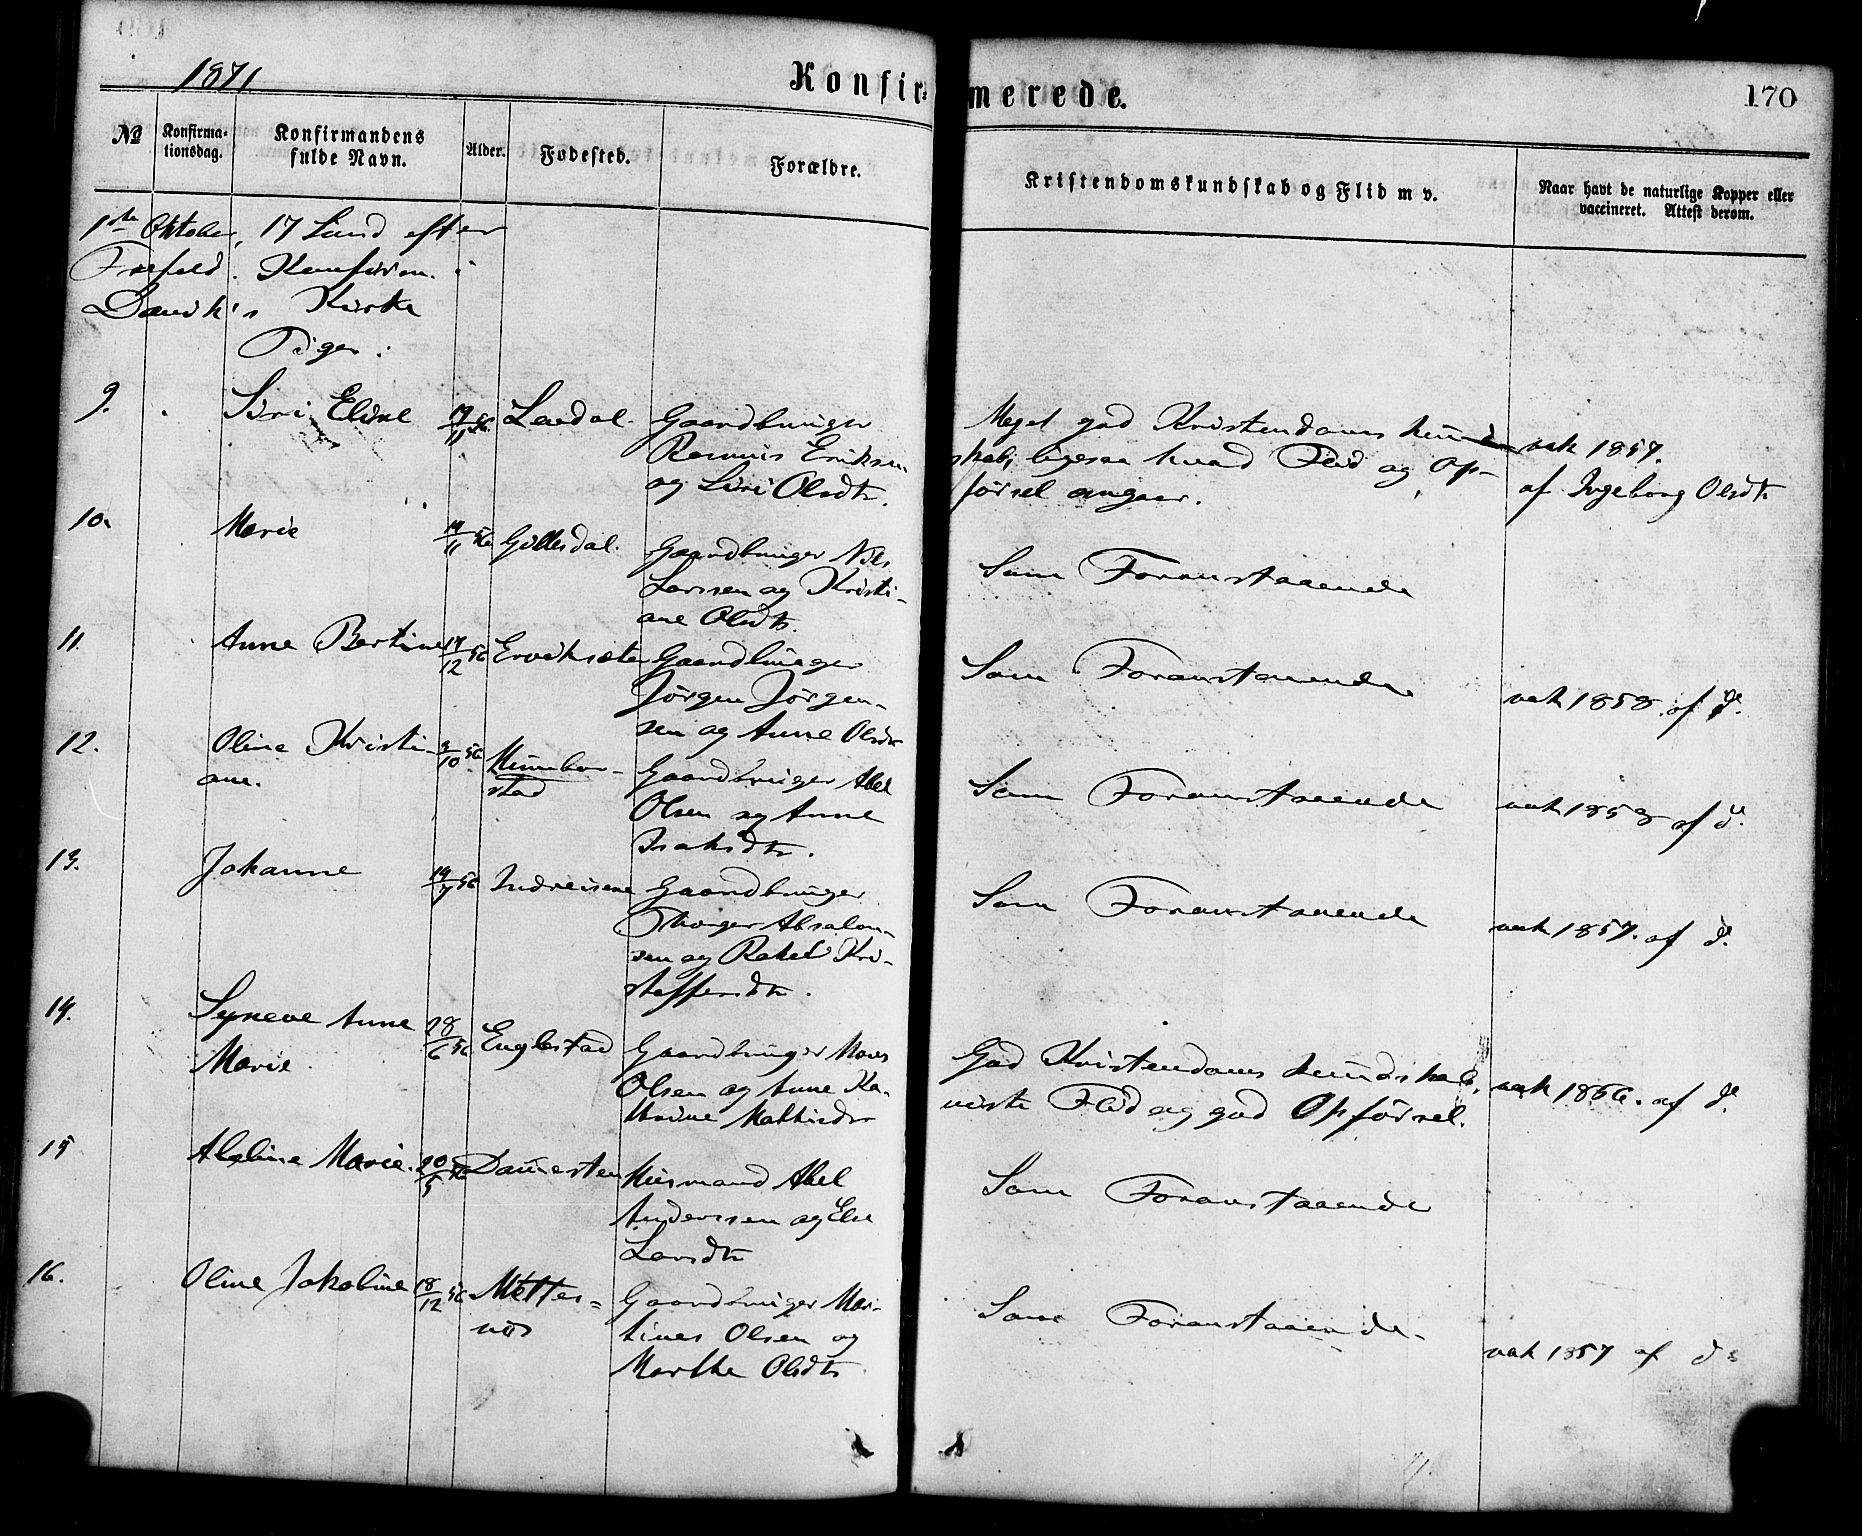 1871
Konfir-
merede.
170
No
Konfirma-
tionsdag.
Konfirmandens
fulde Navn.
Alder.
Fødested.
Forældre.
Kristendomskundskab og Flid m v.
Naar havt de naturlige Kopper eller
vaccineret. Attest derom.
1ste Oktober, 17 Sund efter
Trefold. Konfirm. i
Davik's Kirke
Piger:
9.
Siri Eline
17/11 56
Leedal.
Gaardbruger
Rasmus Eriksen
og Siri Olsdtr.
Meget god Kristendomskund-
skab, ligesaa hvad Flid og Op-
førsel angaar.
vak 1857.
af Ingeborg Olsdtr
10.
Marie
19/11 56
Gillesdal.
Gaardbruger Nils
Larssen og Kristi-
ane Olsdtr.
Som Foranstaaende
11.
Anne Bertine
14/12 56
Erviksæter
Gaardbruger
Jørgen Jørgen-
sen og Anne Olsdtr
Som Foranstaaende
vak 1858. af d.
12.
Oline Kristi-
ane.
3/10 56
Humbor-
stad
Gaardbruger Abel
Olsen og Anne
Isaksdtr.
Som Foranstaaende
vak 1858 af d.
13.
Johanne
19/7 56
Indreisene
Gaardbruger
Thorger Absalon-
sen og Rakel Kri-
stoffersdtr.
Som Foranstaaende
vak 1857. af d.
14.
Syneve Anne
Marie.
28/6 56
Englestad
Gaardbruger Mons
Olsen og Anne Ka-
thrine Mathisdtr
God Kristendomskundskab,
viste Flid og god Opførsel.
vak 1866. af d.
15
Abeline Marie.
20/5 56
Daviesten
Husmand Abel
Anderssen og Else
Larsdtr
Som Foranstaaende
16.
Oline Jakobine
18/12 56
Mettes-
næs
Gaardbruger Mar-
tinus Olsen og
Marthe Olsdtr
Som Foranstaaende.
vak 1857 af d: